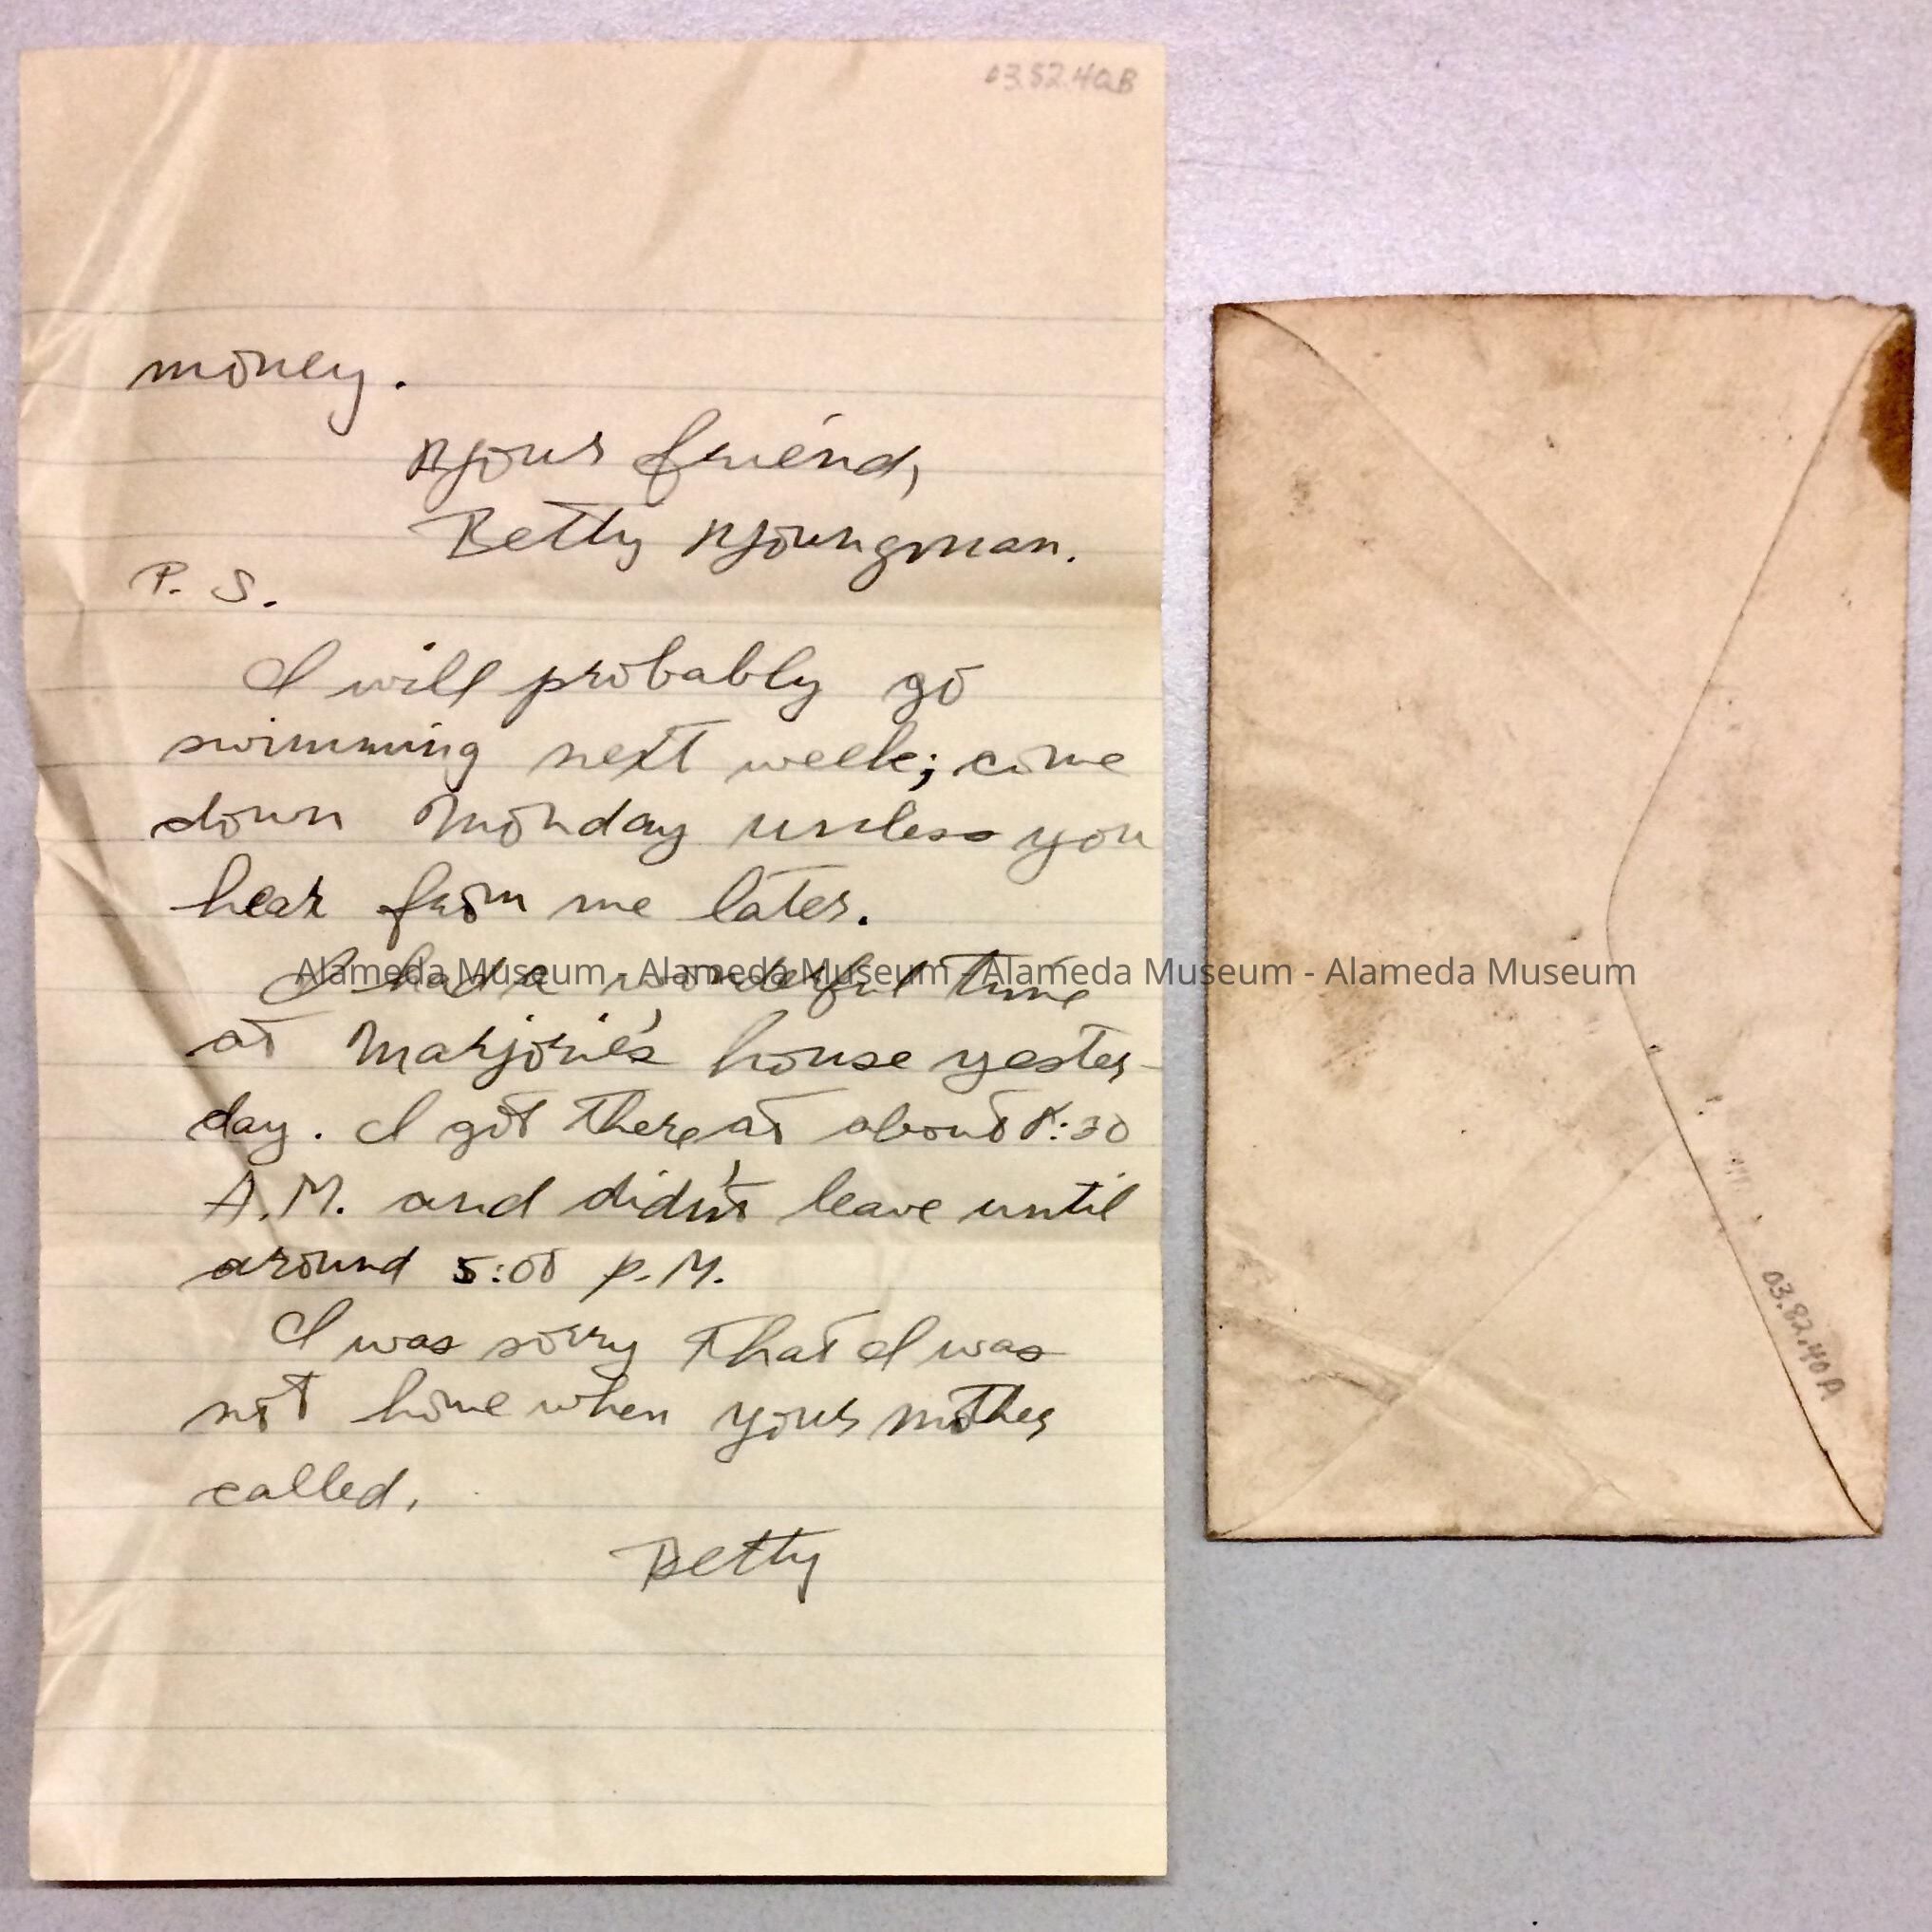 03.82.40B
money.
Your friend,
Betty Youngman.
P. S.
I will probably go
swimming next week; come
down Monday unless you
hear from me later.
I had a wonderful time
at Marjorie's house yester-
day. I got there at about 8:30
A.M. and didn't leave until
around 5:00 P.M.
I was sorry that I was
not home when your mother
called.
Betty
03.82.40A
Alameda Museum - Alameda Museum - Alameda Museum - Alameda Museum